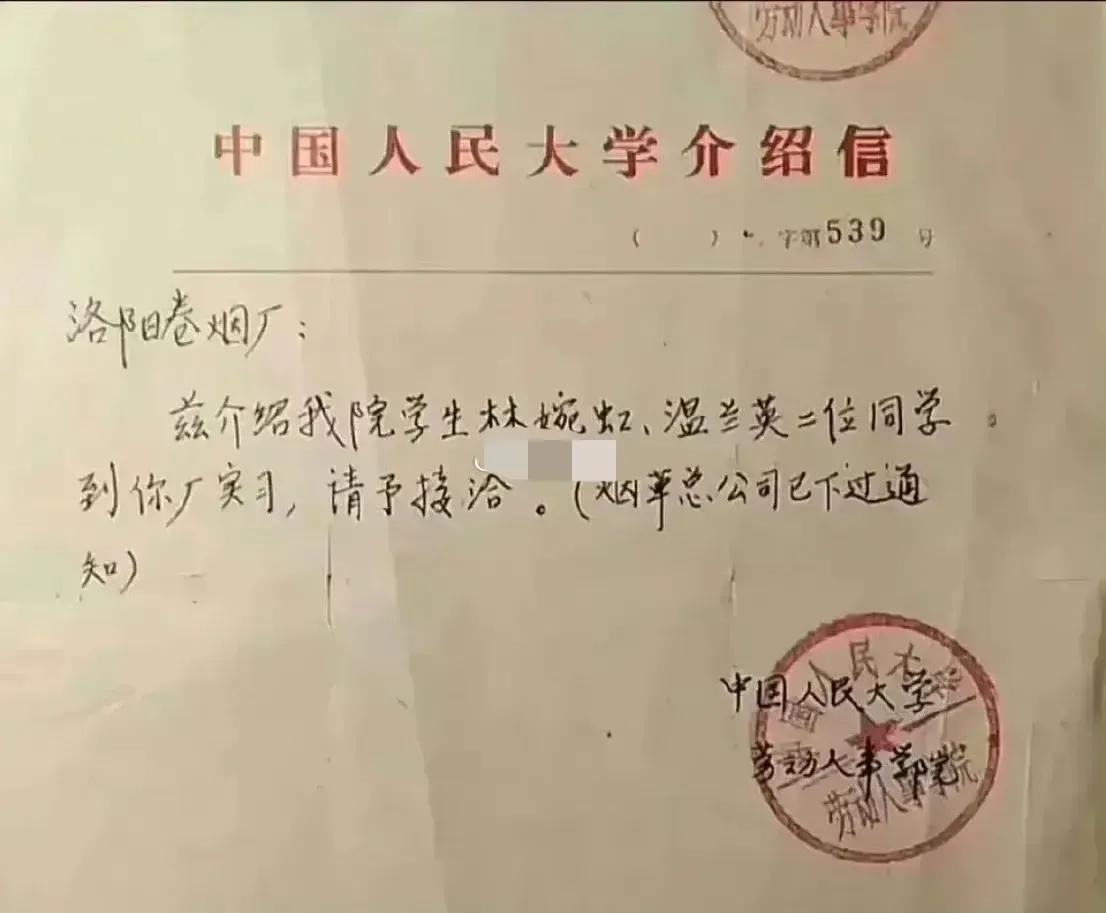 劳动人事学院
中国人民大学介绍信
（ ） 字第539号
洛阳卷烟厂：
兹介绍我院学生林婉虹、温兰英二位同学。
到你厂实习，请予接洽。（烟草总公司已下过通
知）
中国人民大学
劳动人事学院
中国人民大学
劳动人事学院